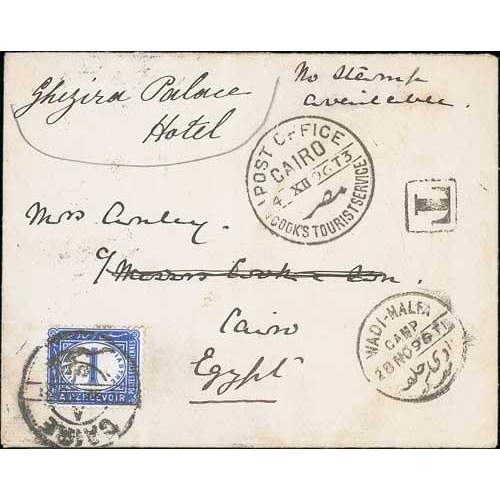 Ghezira Palace
Hotel
No stamp
available.
POST OFFICE
CAIRO
4 XII 96 T3
COOK'S TOURIST SERVICE
T
c/ Messrs Cook & Son.
Cairo
Egypt
WADI-HALFA
CAMP
28 NO 96
وادي حلفا
1
A PERCEVOIR
CAIRE